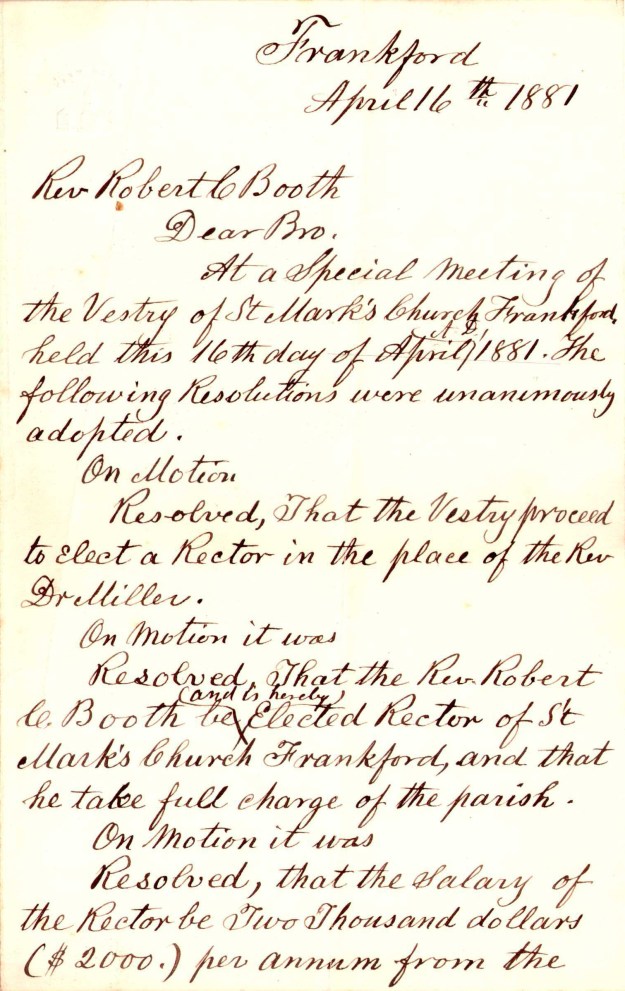 Frankford
April 16th 1881
Rev Robert C Booth
Dear Bro.
At a Special Meeting of
the Vestry of St Mark's Church, Frankford,
held this 16th day of April A.D. 1881. The
following Resolutions were unanimously
adopted.
On Motion
Resolved, That the Vestry proceed
to Elect a Rector in the place of the Rev
Dr Miller.
On Motion it was
Resolved, That the Rev. Robert
C. Booth be (and is hereby) Elected Rector of St
Mark's Church Frankford, and that
he take full charge of the parish.
On Motion it was
Resolved, that the Salary of
the Rector be Two Thousand dollars
($ 2000.) per annum from the